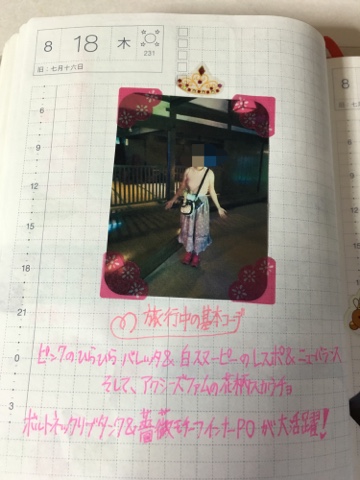 8 18 木
231
旧:七月十六日
6
9
12
15
18
21
0
3
旅行中の基本コーデ
ピンクのひらひらバレッタ&白スヌーピーのレスポ&ニューバランス
そして、アクシーズファムの花柄スカウチョ
ボルトネックリブタンク&薔薇モチーフインナーPOが大活躍!